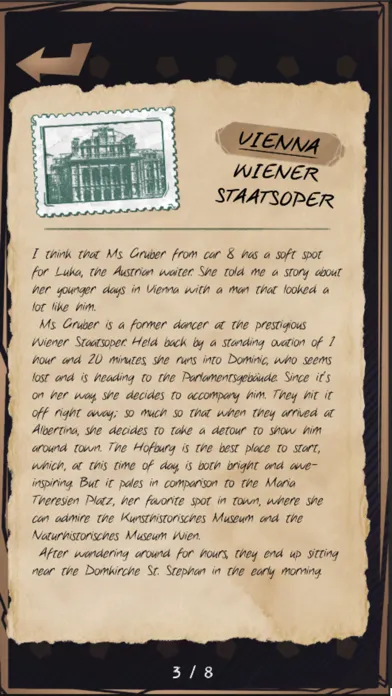 VIENNA
WIENER
STAATSOPER
I think that Ms. Gruber from car 8 has a soft spot
for Luka, the Austrian waiter. She told me a story about
her younger days in Vienna with a man that looked a
lot like him.
Ms. Gruber is a former dancer at the prestigious
Wiener Staatsoper. Held back by a standing ovation of 1
hour and 20 minutes, she runs into Dominic, who seems
lost and is heading to the Parlamentsgebäude. Since it's
on her way, she decides to accompany him. They hit it
off right away; so much so that when they arrived at
Albertina, she decides to take a detour to show him
around town. The Hofburg is the best place to start,
which, at this time of day, is both bright and awe-
inspiring. But it pales in comparison to the Maria
Theresien Platz, her favorite spot in town, where she
can admire the Kunsthistorisches Museum and the
Naturhistorisches Museum Wien.
After wandering around for hours, they end up sitting
near the Domkirche St. Stephan in the early morning.
3 / 8